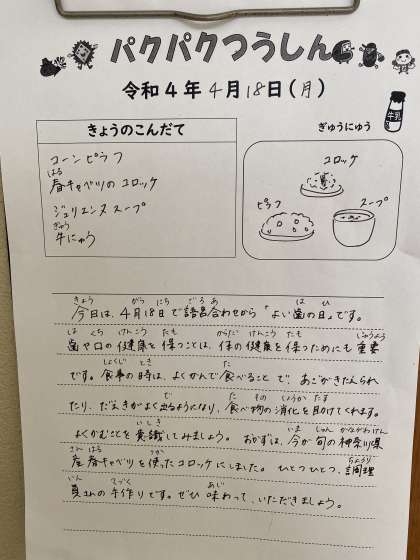 パクパクつうしん
令和4年4月18日(月)
きょうのこんだて
コーンピラフ
はる
春キャベツのコロッケ
ジュリエンヌスープ
ぎゅう
牛にゅう
ぎゅうにゅう
牛乳
コロッケ
ピラフ
スープ
きょう がつ にち ごろあ は ひ
今日は、4月18日で語呂合わせから「よい歯の日」です。
は くち けんこう たも からだ けんこう たも じゅうよう
歯や口の健康を保つことは、体の健康を保つためにも重要
しょくじ とき た
です。食事の時は、よくかんで食べることで、あごがきたえられ
で た もの しょうか たす
たり、だ液がよく出るようになり、食べ物の消化を助けてくれます。
いま しゅん かながわけん
よくかむことを意識してみましょう。おかずは、今が旬の神奈川県
さん はる つか ちょうり
産春キャベツを使ったコロッケにしました。ひとつひとつ、調理
いん てづく あじ
員さんの手作りです。ぜひ味わって、いただきましょう。